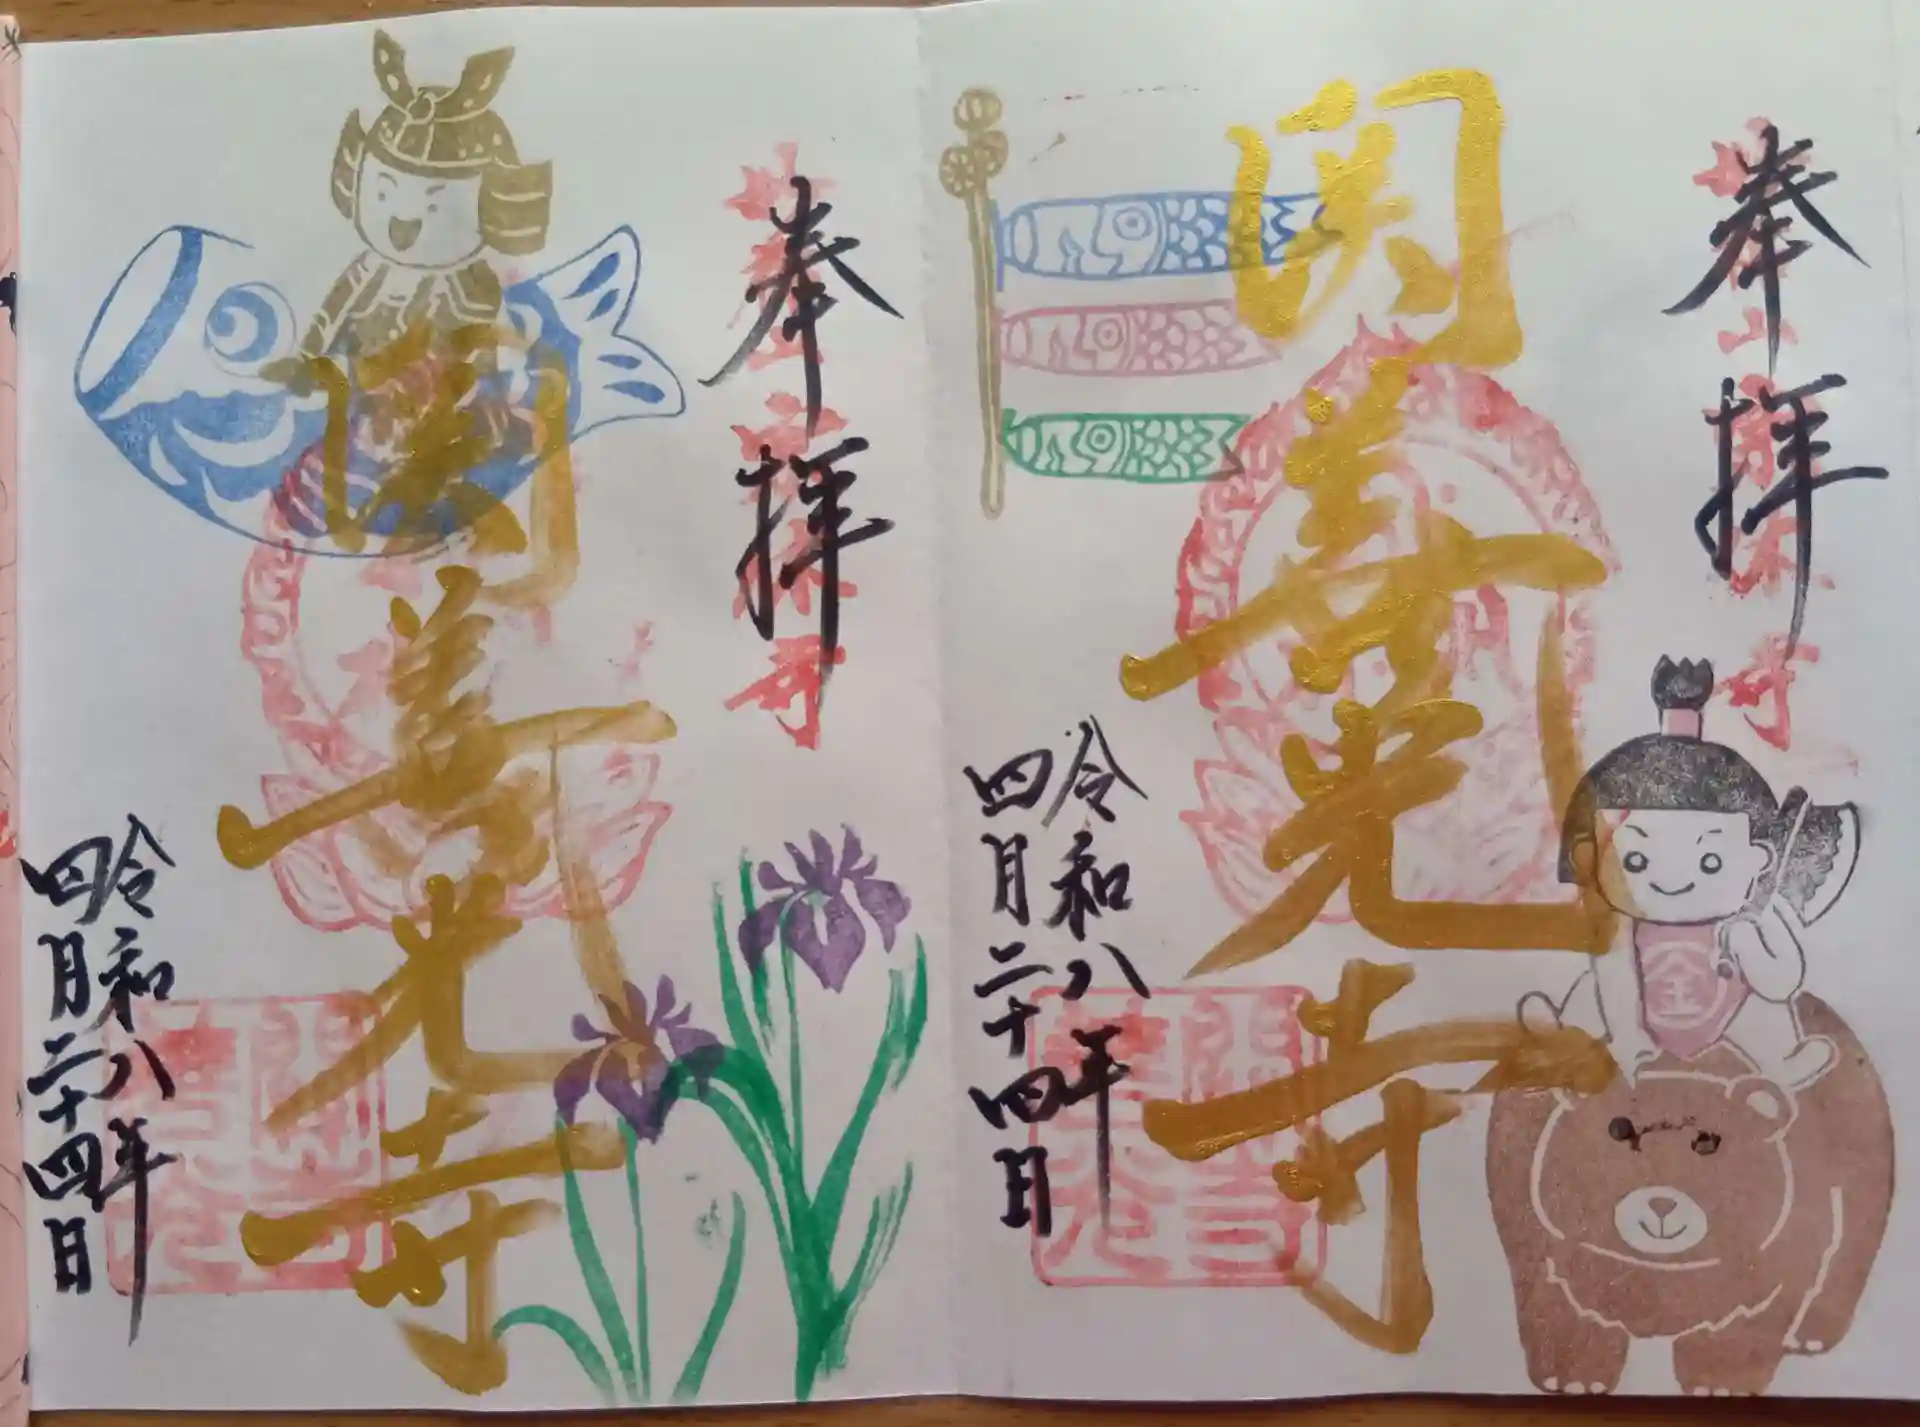 奉拝
関善光寺
金
令和八年
四月二十四日
奉拝
関善光寺
令和八年
四月二十四日